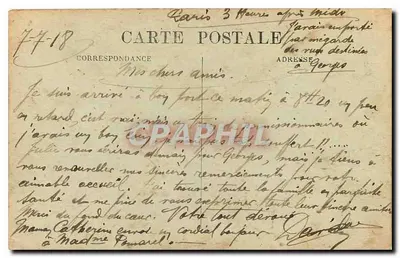 Paris 3 Heures après Midi
7-7-18
J'avais emporté
par mégarde
des vues destinées
à Georges
CARTE POSTALE
CORRESPONDANCE
ADRESSE
Mes chers amis.
Je suis arrivé à bon port ce matin à 8h20 un peu
en retard, c'est vrai mais un train de permissionnaires où
j'avais un bon
CPARAMA
Julie vous écrira demain pour Georges, mais je tiens à
vous renouveller mes sincères remerciements pour votre
aimable accueil. J'ai trouvé toute la famille en parfaite
santé et me prie de vous exprimer toute leur sincère amitié
Merci du fond du cœur. Votre tout dévoué
Maman Catherine envoie un cordial bonjour
à Madame